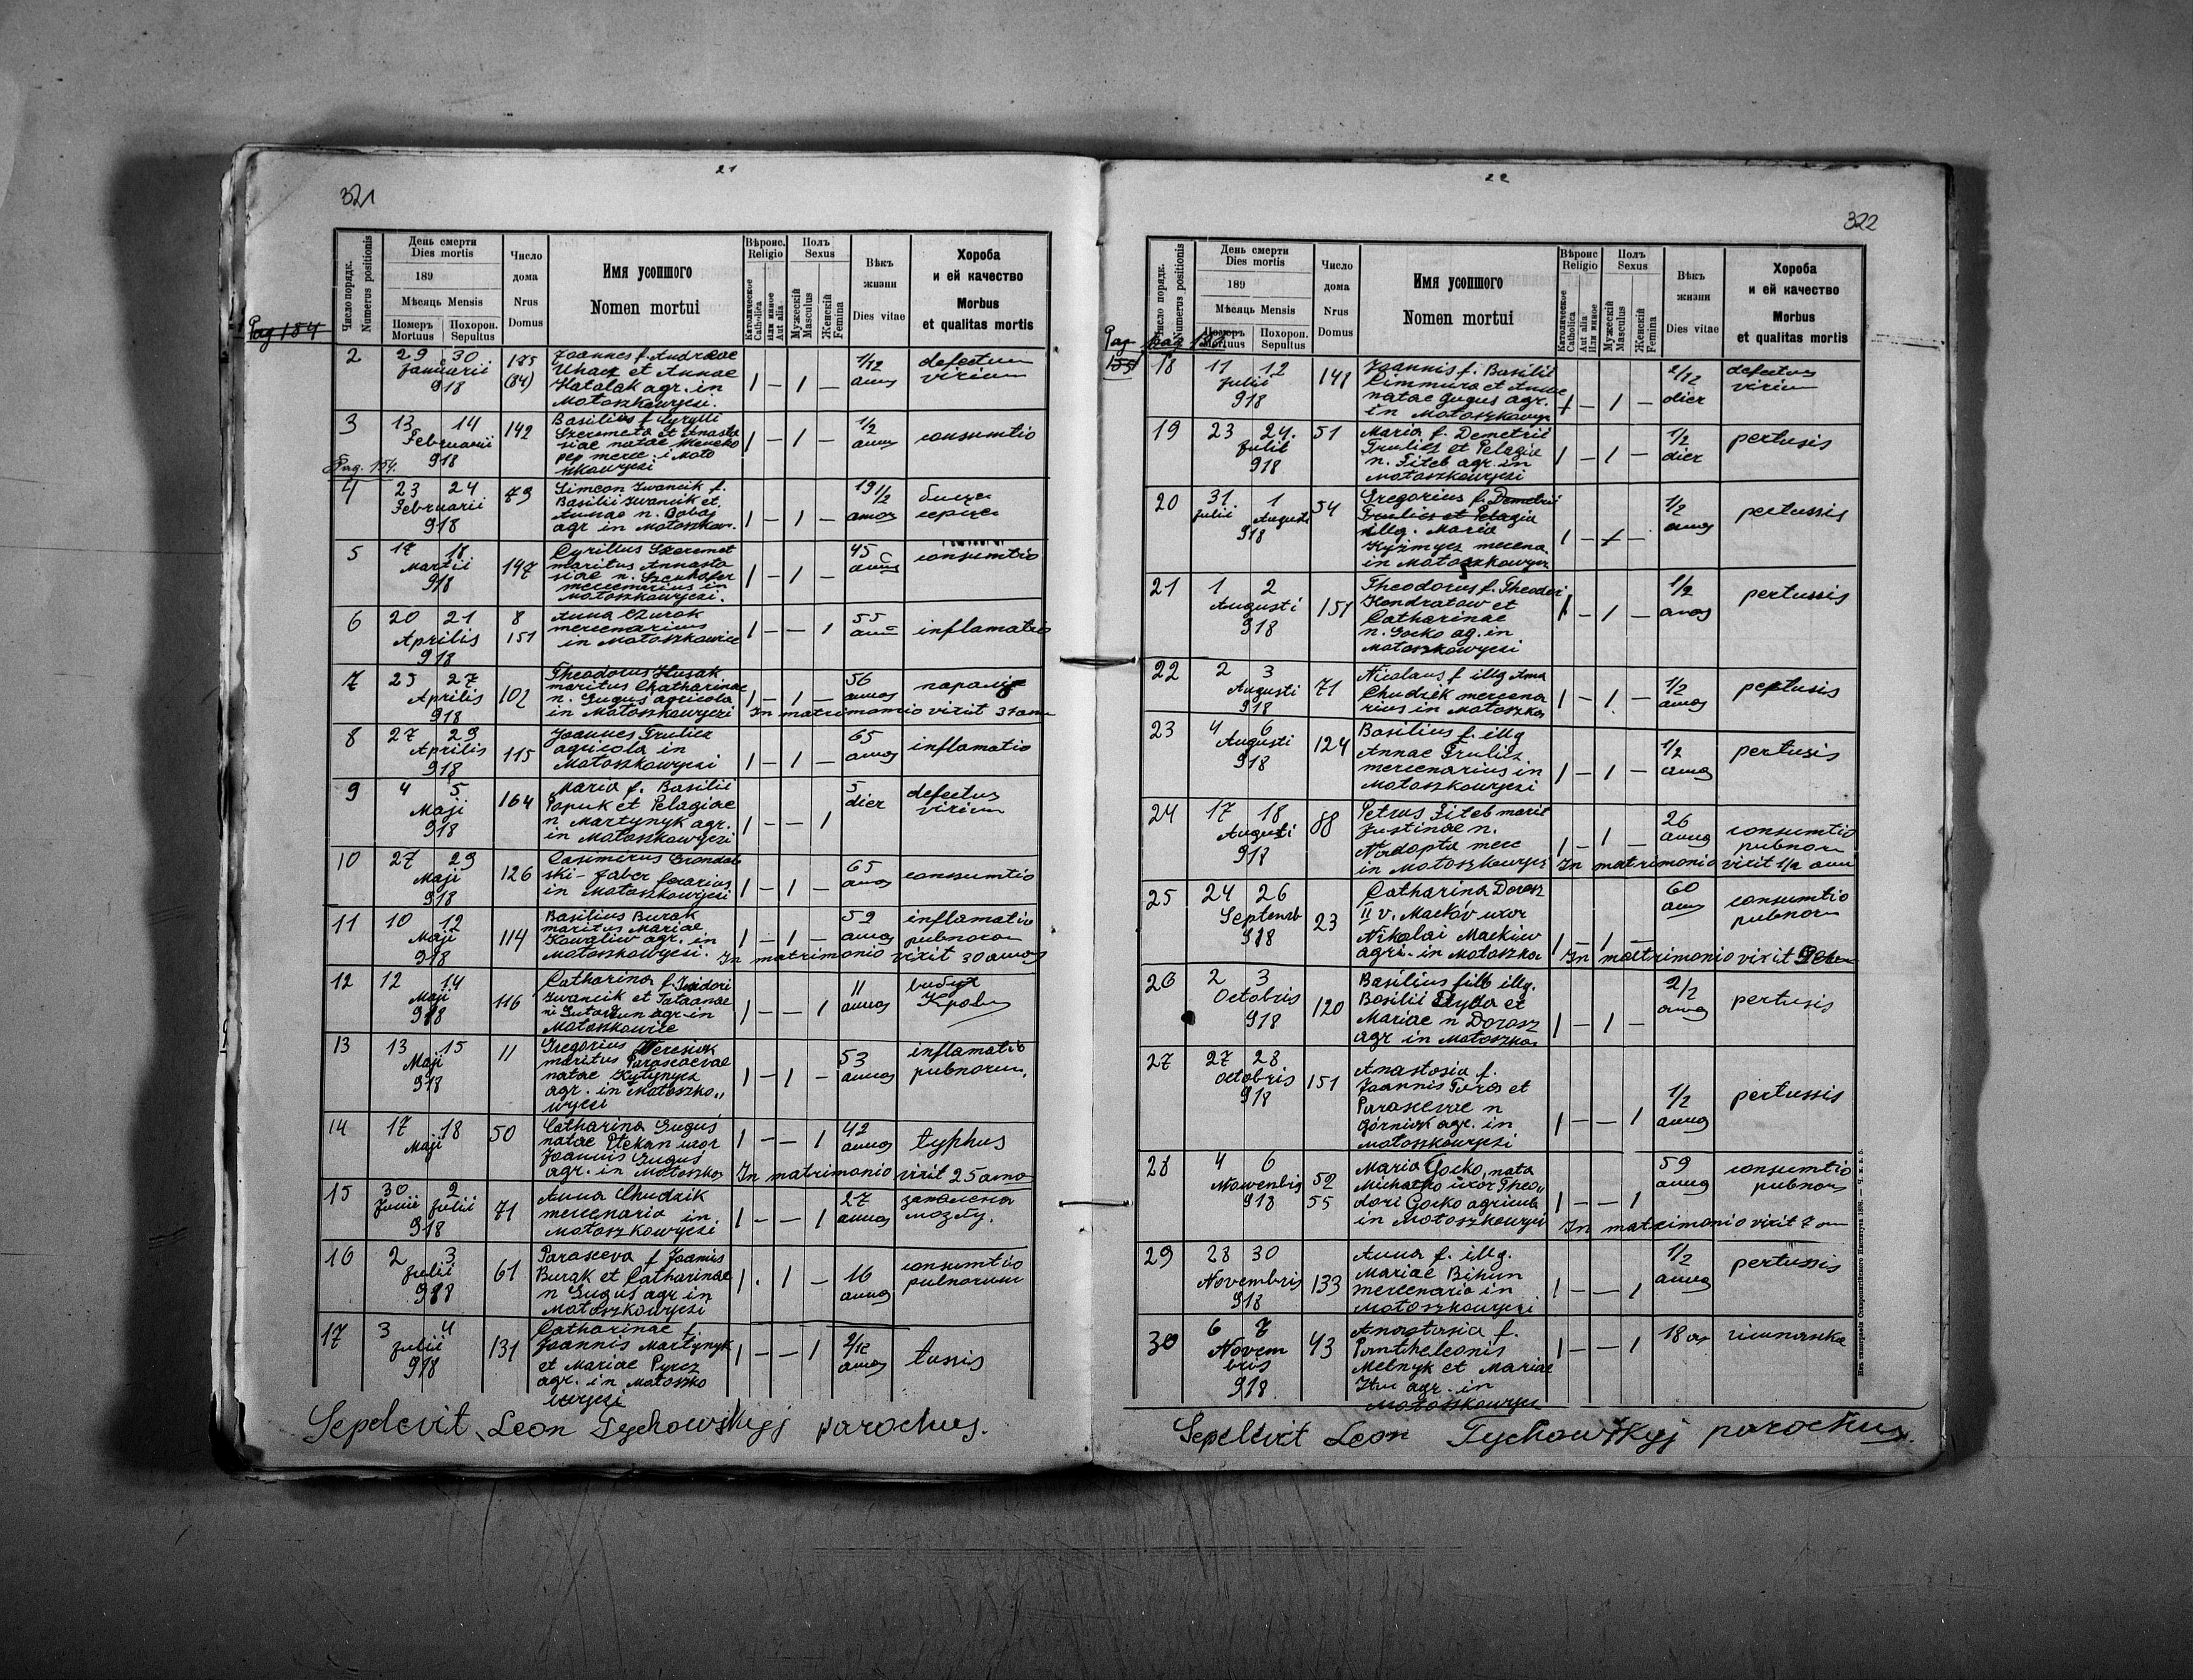 21
321
Pag 154
Число порядк.
Numerus positionis
День смерти
Dies mortis
189
Мѣсяць Mensis
Померъ
Mortuus
Похорон.
Sepultus
Число
дома
Nrus
Domus
Имя усопшого
Nomen mortui
Вѣроис.
Religio
Католическое
Catholica
Или инное
Aut alia
Полъ
Sexus
Мужескій
Masculus
Женскій
Femina
Вѣкъ
жизни
Dies vitae
Хороба
и ей качество
Morbus
et qualitas mortis
2 29 30 175 Joannes f. Andreae 1/12 defectum
Januarii (84) Uhacz et Annae 1 – 1 – virium
918 Hatalak agr. in
Matoszkowyczi.
3 13 14 142 Basilius f. Cyrylli 1/2 consumtio
Februarii Szeremeta et Anasta 1 – 1 –
918 siae natae
Pag. 154.
4 23 24 79 Simeon Iwancik f. 19 1/2
Februarii Basilii Iwancik et
918 Annae n. Babaj
agr in Matoszkow. 1 – 1 –
5 18 147 Cyrillus Szeremet 45 consumtio
Martii maritus Annasta
918 siae n. 1 – 1 –
mercenarius in
Matoszkowyczi.
6 20 21 8 Anna Czurak 55
Aprilis 151 mercenarius 1 – – 1 inflamatio
918 in Matoszkowice
7 25 27 102 Theodorus Husak 56
Aprilis maritus Chatharinae annos
918 n. Gugus agricola 1 – 1 –
in Matoszkowyczi In matrimonio vixit 31 ann
8 27 29 115 Joannes Trulicz 65 inflamatio
Aprilis agricola in annos
918 Matoszkowyczi 1 – 1 –
9 4 5 164 Maria f. Basilii 5 defectus
Maji Papuk et Pelagiae dier virium
918 n. Martynyk agr. 1 – – 1
in Matoszkowyczi
10 27 29 126 Casimirus Grondal 65 consumtio
Maji ski - faber ferarius annos
918 in Matoszkowyczi 1 – 1 –
11 10 12 114 Basilius Burak 59 inflamatio
Maji maritus Mariae annos pulmorum
918 Kowaliw agr. in 1 – 1 –
Matoszkowyczi. In matrimonio vixit 30 annos
12 12 14 116 Catharina f. Isidori 11
Maji Iwancik et Tatianae annos
918 agr. in 1 – – 1
Matoszkowice
13 13 15 11 Gregorius 53 inflamatio
Maji maritus Parascevae annos pulmorum.
918 natae 1 – 1 –
agr. in Matoszko„
wyczi
14 17 18 50 Catharina Gugus 1 – – 1 42 typhus
Maji natae uxor annos
Joannis Gugus
agr. in Matoszko In matrimonio vixit 25 anno
15 30 2 71 Anna Chudzik 27 запаленя
Junii Julii mercenaria in 1 – – 1 annos мозгу.
918 Matoszkowyczi
16 2 3 61 Parasceva f Joannis 16 consumtio
Julii Burak et Catharinae 1 . 1 – annos pulmorum
918 n Gugus agr in
Matoszkowyczi
17 3 4 131 Catharinae f. 2/12 tussis
Julii Joannis Martynyk 1 – – 1 annos
918 et Mariae Pyrcz
agr. in Matoszko
wyczi
Sepelevit Leon Tychowskyj parochus.
22
322
Pag
155
Число порядк.
Numerus positionis
День смерти
Dies mortis
189
Мѣсяць Mensis
Померъ
Mortuus
Похорон.
Sepultus
Число
дома
Nrus
Domus
Имя усопшого
Nomen mortui
Вѣроис
Religio
Католическое
Catholica
Aut alia
Или инное
Полъ
Sexus
Мужескій
Masculus
Женскій
Femina
Вѣкъ
жизни
Dies vitae
Хороба
и ей качество
Morbus
et qualitas mortis
18 11 12 141 Joannis f. Basilii 2/12 defectus
Julii Cimmura et Annae dier virium
918 natae Gugus agr. 1 – 1 –
in Matoszkowyn
19 23 24. 51 Maria f. Demetrii 1/2 pertusis
Julii Trulicz et Pelagia dier
918 n. Fiteb agr. in 1 – 1 –
Matoszkowyczi
20 31 1 54 Gregorius f. Demetrii 1/2 pertussis
Julii Augusti Trulicz et Pelagia annos
918 illeg. Maria
Kyzmycz mercena 1 – 1 –
in Matoszkowycz
21 1 2 151 Theodorus f. Theodori 1/2 pertussis
Augusti Kondratow et 1 – 1 – annos
918 Catharinae
n. Gocko ag. in
Matoszkowyczi
22 2 3 71 Nicolaus f illg Anna 1/2 pertusis
Augusti Chudzik mercena 1 – 1 – annos
918 rius in Matoszko
23 4 6 124 Basilius f. illg 1/2 pertusis
Augusti Annae Trulicz annos
918 mercenarius in 1 – 1 –
Matoszkowyczi
24 17 18 88 Petrus Fiteb marit 26 consumtio
Augusti Justinae n. 1 – 1 – annos pulmorum
918 Nadopta merc
in Matoszkowycz In matrimonio vixit 1/2 ann
25 24 26 23 Catharina Dorosz 60 consumtio
Septemb II v. Maćków uxor pulmorum
918 Nikolai Mackiw 1 – 1 –
agri. in Matoszko In matrimonio vixit
26 2 3 120 Basilius filb illg. 2/2 pertusis
Octobris Basilii Dyda et annos
918 Mariae n Dorosz 1 – 1 –
agr in Matoszko
27 27 28 151 Anastasia f. 1/2 pertussis
octobris Joannis Turos et annos
918 Parascevae n
Górniak agr. in 1 – – 1
Matoszkowyczi
28 4 6 52 Maria Gocko, nata 59 consumtio
Nowenbris 55 uxor Theo„ annos pulmorum
918 dori Gocko agricola 1 – – 1
in Matoszkowyczi In matrimonio vixit 7 an
29 28 30 133 Anna f. illg. 1/2 pertussis
Novembris Mariae Bihun annos
918 mercenaria in 1 – – 1
Matoszkowyczi
30 6 7 43 Anastasia f. 18
Novem Pantheleonis 1 – – 1
bris Melnyk et Mariae
918 agr. in
Matoszkowycz
Sepelevit Leon Tychowśkyj parochus.